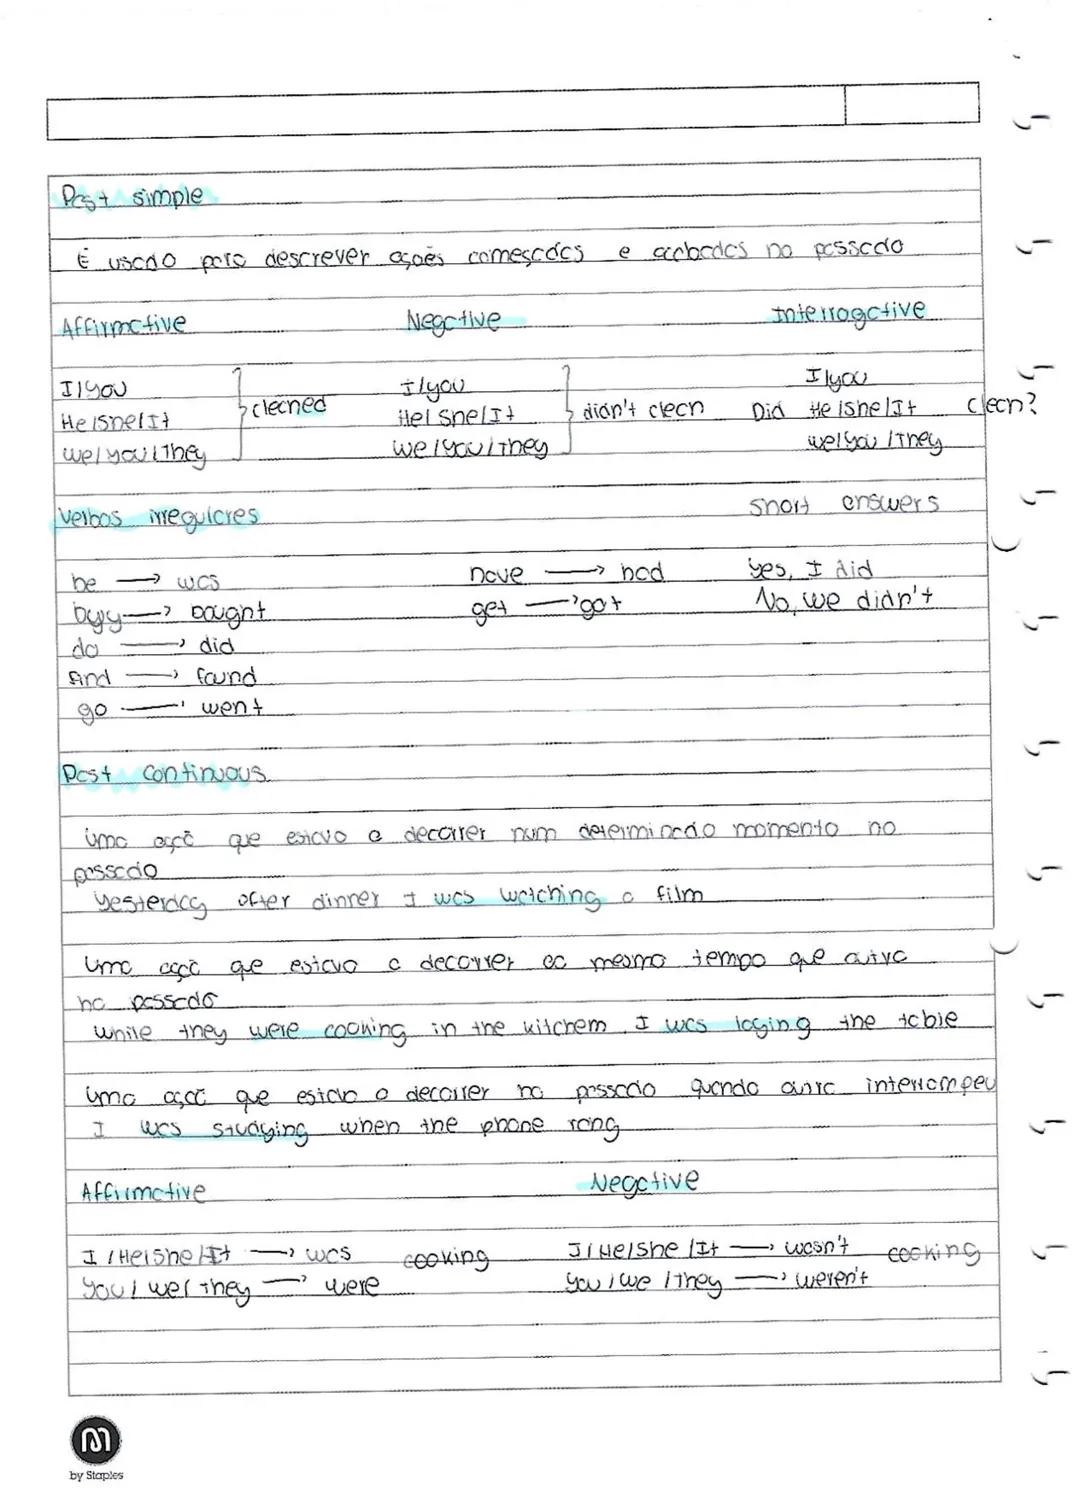 Past simple
É usado para descrever ações começadas e acabadas no passado
Affirmative Negative Interrogative
I/you I/you I/you
He/she/It cleaned He/She/It didn't clean Did He/she/It clean?
we/you/They we/you/They we/you/They
Verbos irregulares short answers
be → was have → had yes, I did
buy → bought get → got No, we didn't
do → did
find → found
go → went
Past continuous
uma açã que estava a decorrer num determinado momento no
passado
yesterday after dinner I was watching a film
uma açã que estava a decorrer ao mesmo tempo que outra
no passado
while they were cooking in the kitchem, I was laging the table
uma açã que estava a decorrer no passado quando outra interrompeu
I was studying when the phone rang
Affirmative Negative
I/He/she/It → was cooking I/He/she/It → wasn't cooking
you/we/they → were you/we/they → weren't
by Staples